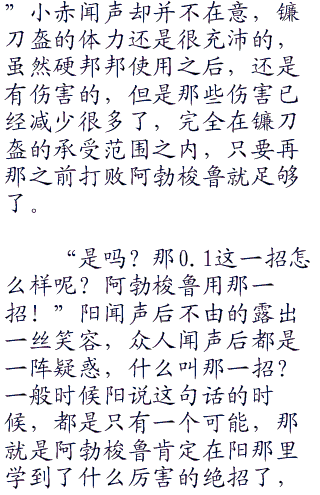 ”小赤闻声却并不在意，镰
刀盔的体力还是很充沛的，
虽然硬邦邦使用之后，还是
有伤害的，但是那些伤害已
经减少很多了，完全在镰刀
盔的承受范围之内，只要再
那之前打败阿勃梭鲁就足够
了。
“是吗？那0.1这一招怎
么样呢？阿勃梭鲁用那一
招！”阳闻声后不由的露出
一丝笑容，众人闻声后都是
一阵疑惑，什么叫那一招？
一般时候阳说这句话的时
候，都是只有一个可能，那
就是阿勃梭鲁肯定在阳那里
学到了什么厉害的绝招了，